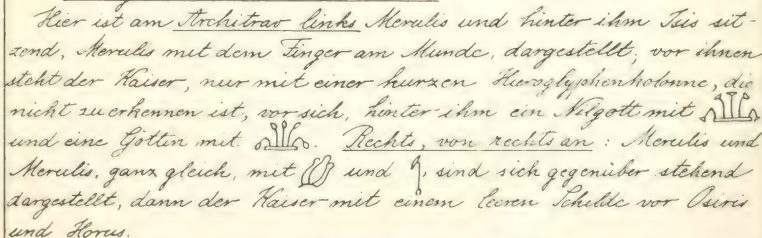 Hier ist am Architrav links Merulis und hinter ihm Isis sit-
zend, Merulis mit dem Finger am Munde, dargestellt; vor ihnen
steht der Kaiser, nur mit einer kurzen Hieroglyphenkolonne, die
nicht zu erkennen ist, vor sich, hinter ihm ein Nilgott mit
und eine Göttin mit . Rechts, von rechts an: Merulis und
Merulis, ganz gleich, mit und , sind sich gegenüber stehend
dargestellt, dann der Kaiser mit einem leeren Schilde vor Osiris
und Horus.